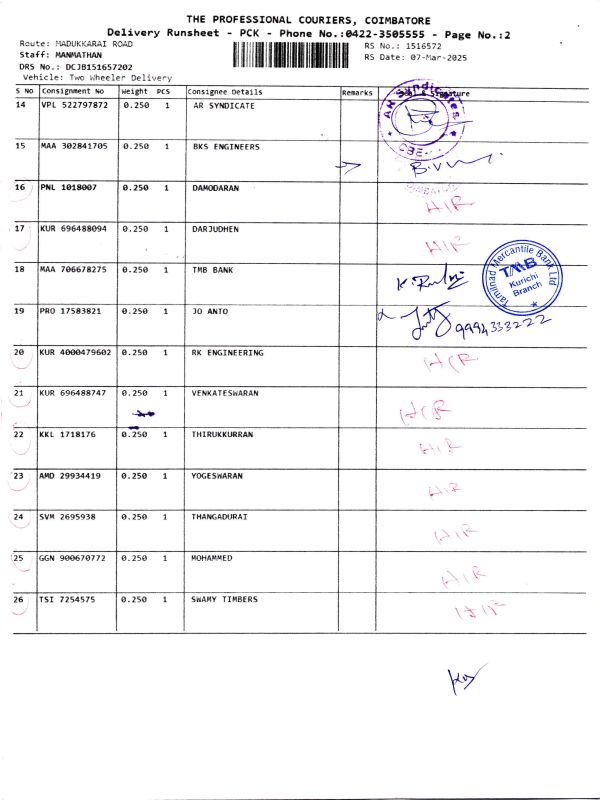 THE PROFESSIONAL COURIERS, COIMBATORE
Delivery Runsheet - PCK - Phone No.:0422-3505555 - Page No.:2
Route: MADUKKARAI ROAD RS No.: 1516572
Staff: MANMATHAN RS Date: 07-Mar-2025
DRS No.: DCJB151657202
Vehicle: Two Wheeler Delivery
S No Consignment No Weight PCS Consignee Details Remarks Seal & Signature
14 VPL 522797872 0.250 1 AR SYNDICATE
AR Syndicates
CBE
15 MAA 302841705 0.250 1 BKS ENGINEERS
16 PNL 1018007 0.250 1 DAMODARAN H/R
17 KUR 696488094 0.250 1 DARJUDHEN H/R
18 MAA 706678275 0.250 1 TMB BANK
Tamilnad Mercantile Bank Ltd
TMB
Kurichi
Branch
19 PRO 17583821 0.250 1 JO ANTO 9994333222
20 KUR 4000479602 0.250 1 RK ENGINEERING H/R
21 KUR 696488747 0.250 1 VENKATESWARAN H/R
22 KKL 1718176 0.250 1 THIRUKKURRAN H/R
23 AMD 29934419 0.250 1 YOGESWARAN H/R
24 SVM 2695938 0.250 1 THANGADURAI H/R
25 GGN 900670772 0.250 1 MOHAMMED H/R
26 TSI 7254575 0.250 1 SWAMY TIMBERS H/R